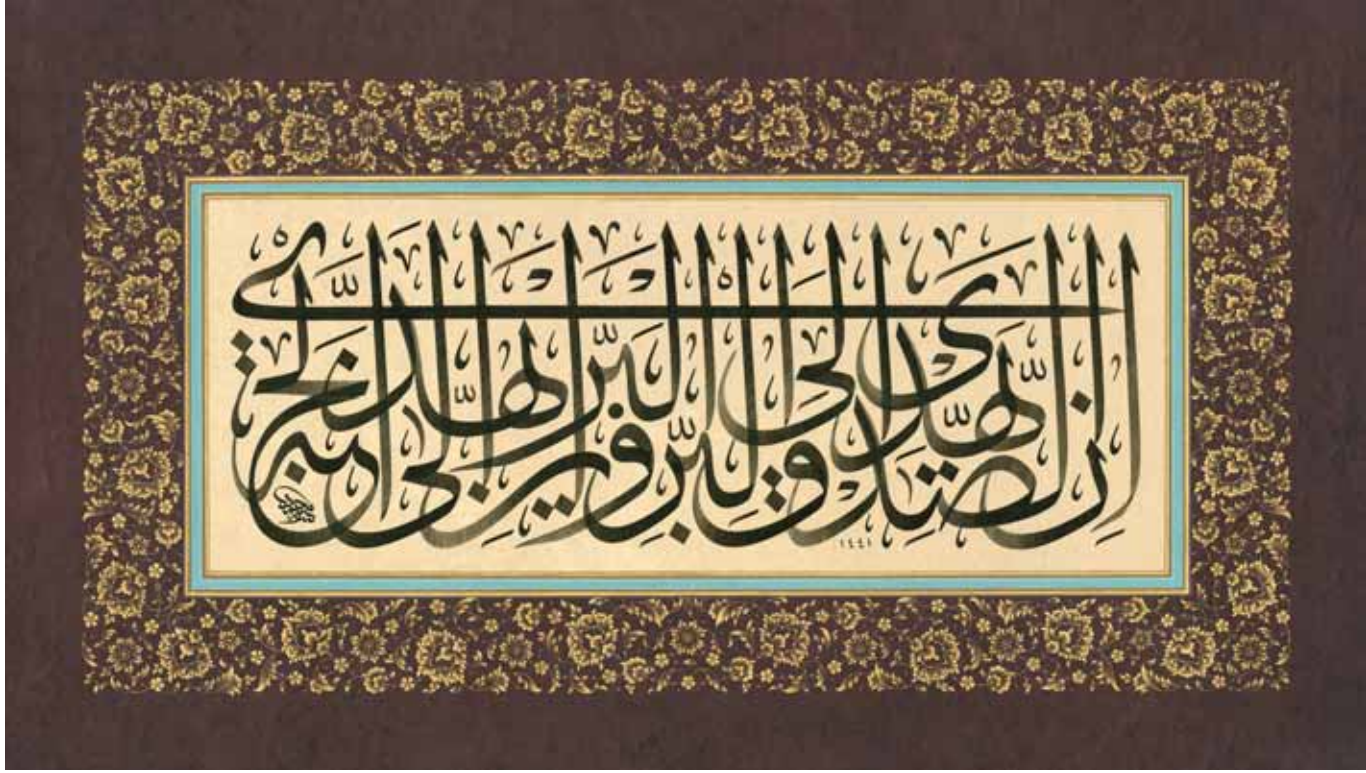 إن الصدق يهدي إلى البر وإن البر يهدي إلى الجنة
١٤٤١